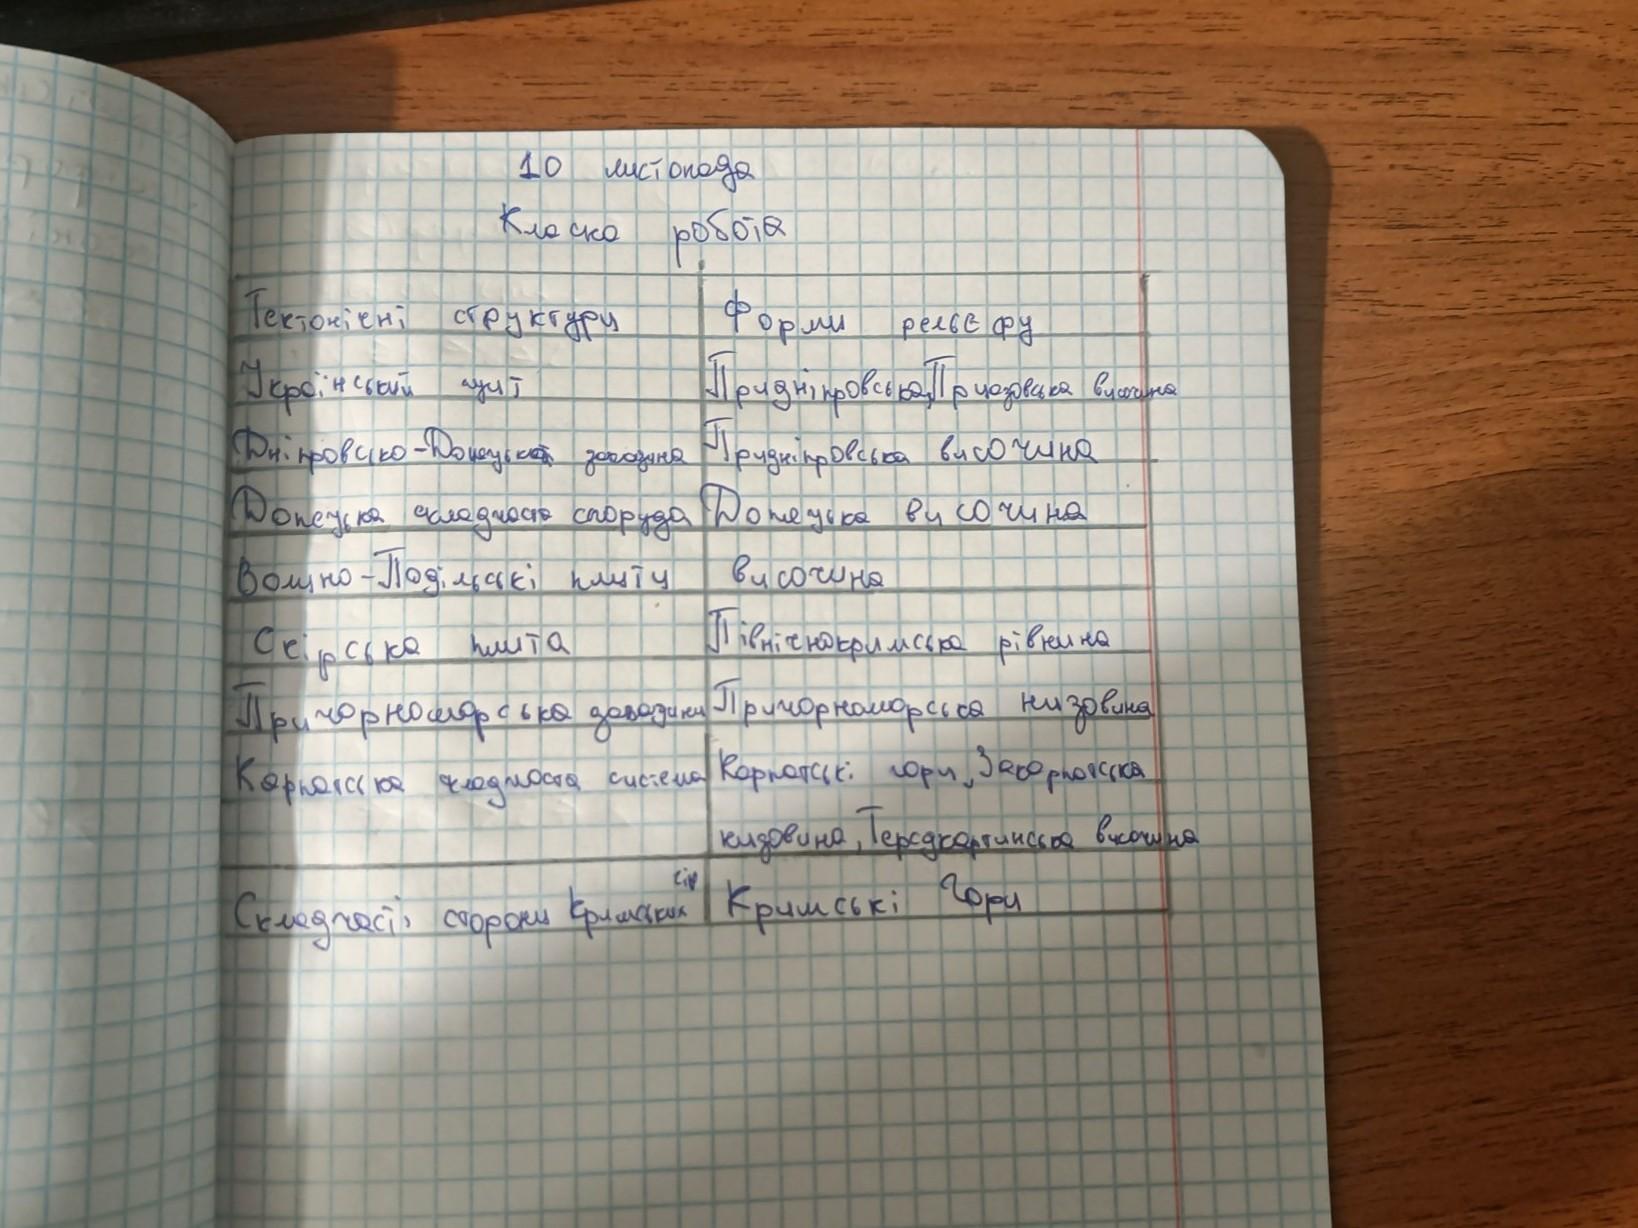 10 листопада
Класна робота
Тектонічні структури Форми рельєфу
Український щит Придніпровська, Приазовська височина
Дніпровсько-Донецька западина Придніпровська височина
Донецька складчаста споруда Донецька височина
Волино-Подільські плити височина
Скіфська плита Північнокримська рівнина
Причорноморська западини Причорноморська низовина
Карпатська складчаста система Карпатські гори, Закарпатська
низовина,
височина
Кримські Гори